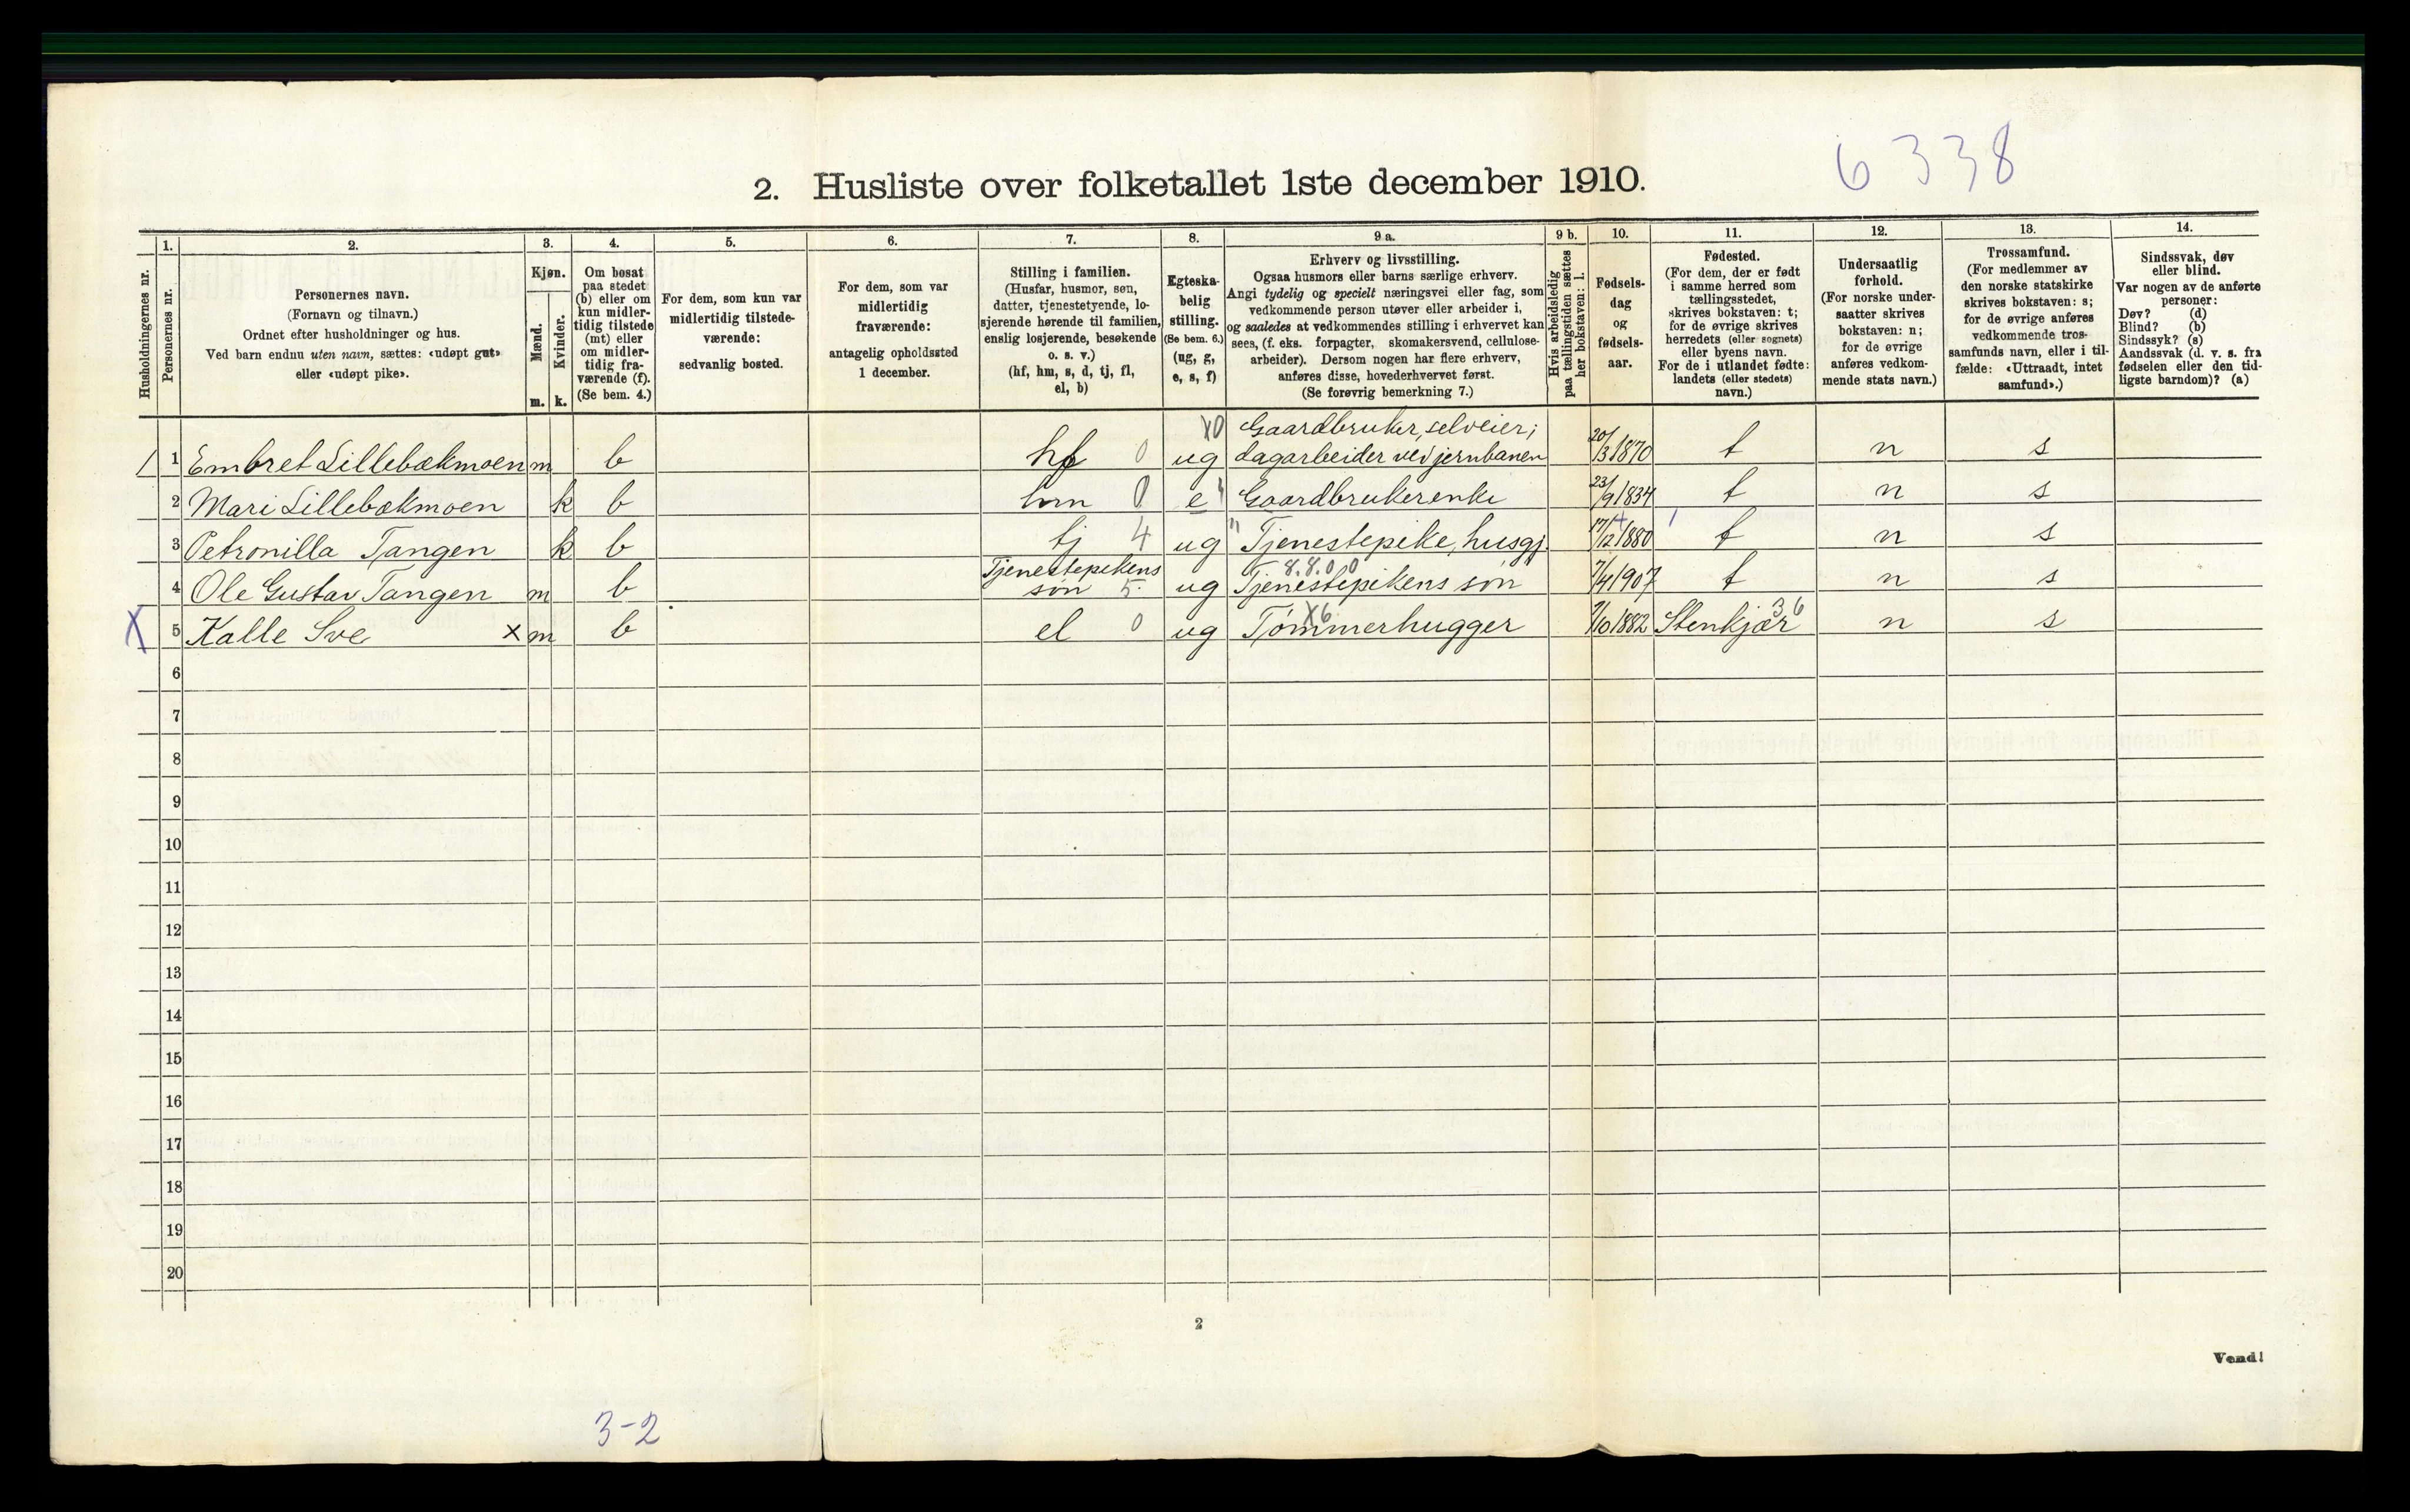 6338
2. Husliste over folketallet 1ste december 1910.
Husholdningernes nr.
1.
Personernes nr.
2.
Personernes navn.
(Fornavn og tilnavn.)
Ordnet efter husholdninger og hus.
Ved barn endnu uten navn, sættes: «udøpt gut»
eller «udøpt pike».
3.
Kjøn.
Mænd.
Kvinder.
m. k.
4.
Om bosat
paa stedet
(b) eller om
kun midler-
tidig tilstede
(mt) eller
om midler-
tidig fra-
værende (f).
(Se bem. 4.)
5.
For dem, som kun var
midlertidig tilstede-
værende:
sedvanlig bosted.
6.
For dem, som var
midlertidig
fraværende:
antagelig opholdssted
1 december.
7.
Stilling i familien.
(Husfar, husmor, søn,
datter, tjenestetyende, lo-
sjerende hørende til familien,
enslig losjerende, besøkende
o. s. v.)
(hf, hm, s, d, tj, fl,
el, b)
8.
Egteska-
belig
stilling.
(Se bem. 6.)
(ug, g,
e, s, f)
9 a.
Erhverv og livsstilling.
Ogsaa husmors eller barns særlige erhverv.
Angi tydelig og specielt næringsvei eller fag, som
vedkommende person utøver eller arbeider i,
og saaledes at vedkommendes stilling i erhvervet kan
sees, (f. eks. forpagter, skomakersvend, cellulose-
arbeider). Dersom nogen har flere erhverv,
anføres disse, hovederhvervet først.
(Se forøvrig bemerkning 7.)
9 b.
Hvis arbeidsledig
paa tællingstiden sættes
her bokstaven: l.
10.
Fødsels-
dag
og
fødsels-
aar.
11.
Fødested.
(For dem, der er født
i samme herred som
tællingsstedet,
skrives bokstaven: t;
for de øvrige skrives
herredets (eller sognets)
eller byens navn.
For de i utlandet fødte:
landets (eller stedets)
navn.)
12.
Undersaatlig
forhold.
(For norske under-
saatter skrives
bokstaven: n;
for de øvrige
anføres vedkom-
mende stats navn.)
13.
Trossamfund.
(For medlemmer av
den norske statskirke
skrives bokstaven: s;
for de øvrige anføres
vedkommende tros-
samfunds navn, eller i til-
fælde: «Uttraadt, intet
samfund».)
14.
Sindssvak, døv
eller blind.
Var nogen av de anførte
personer:
Døv? (d)
Blind? (b)
Sindssyk? (s)
Aandssvak (d. v. s. fra
fødselen eller den tid-
ligste barndom)? (a)
1 1 Embret Lillebækmoen m b hf 0 ug X0 Gaardbruker, selveier; dagarbeider ved jernbanen 20/3 1870 t n s
2 Mari Lillebækmoen k b 0 e Gaardbrukerenke 23/9 1834 t n s
3 Petronilla Tangen k b tj 4 ug " Tjenestepike, husgj. 17/12 1880 t n s
4 Ole Gustav Tangen m b Tjenestepikens søn 5 ug 8.8.00 Tjenestepikens søn 7/4 1907 t n s
X 5 Kalle Sve x m b el 0 ug X6 Tømmerhugger 7/10 1882 Stenkjær 36 n s
6
7
8
9
10
11
12
13
14
15
16
17
18
19
20
2
Vend!
3-2